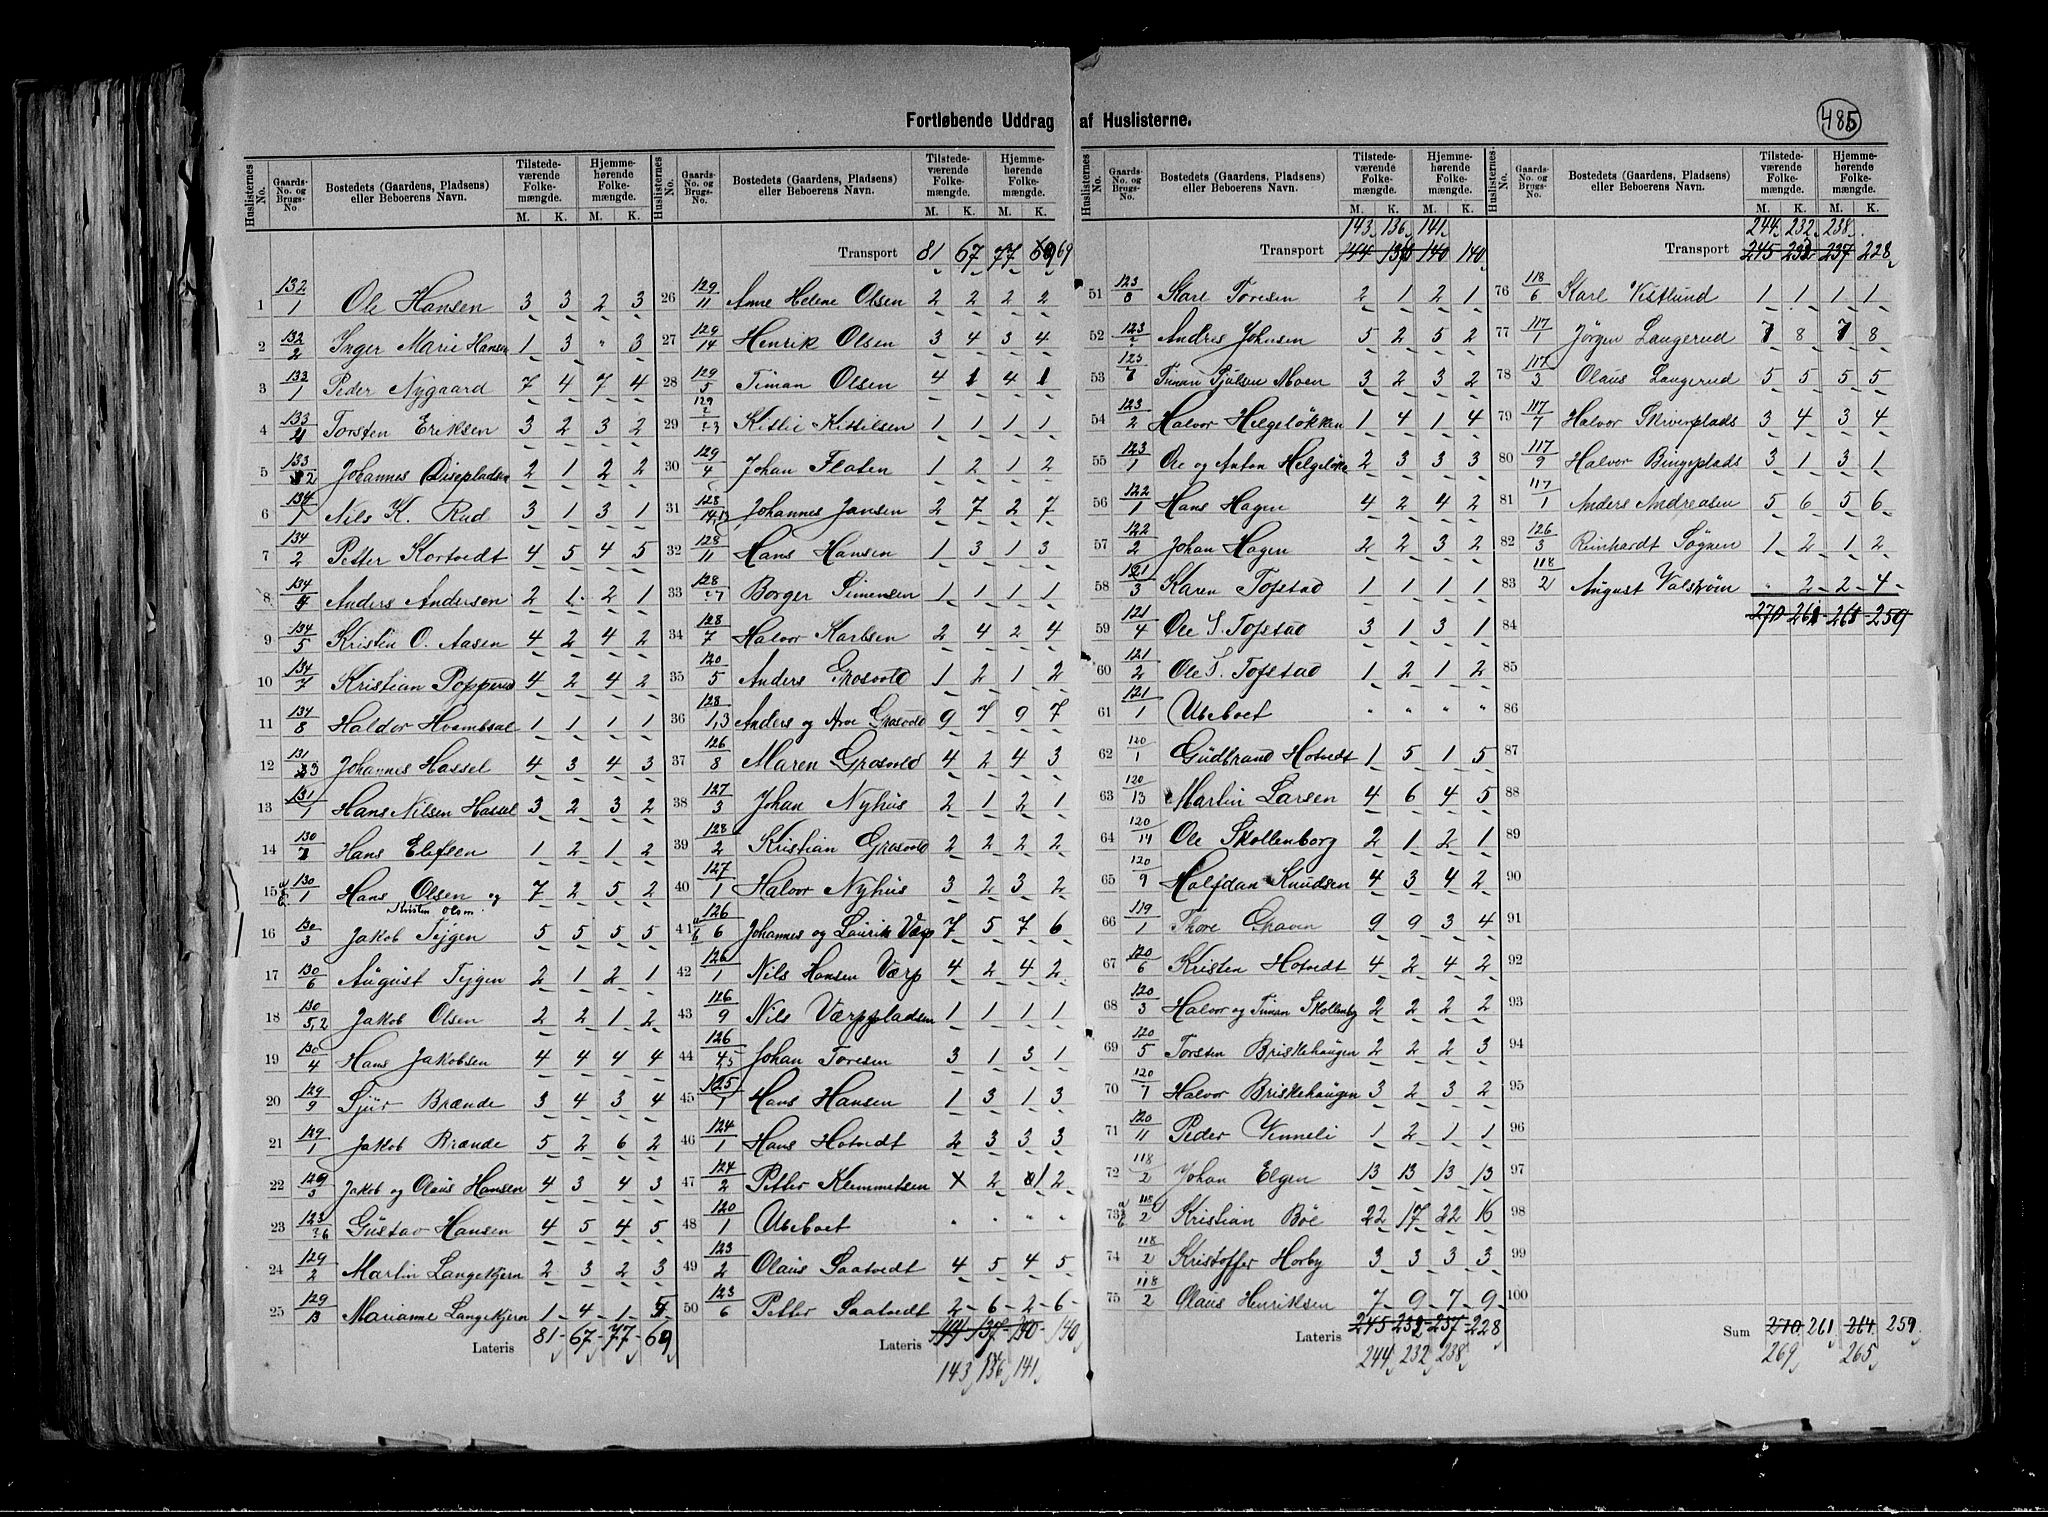 485
Fortløbende Uddrag af Huslisterne.
Huslisternes No. Gaards-No. og Brugs-No. Bostedets (Gaardens, Pladsens) eller Beboerens Navn. Tilstede-værende Folke-mængde. M. K. Hjemme-hørende Folke-mængde. M. K.
1 132/1 Ole Hansen 3 3 2 3
2 132/2 Inger Marie Hansen 1 3 " 3
3 133/1 Peder Nygaard 7 4 7 4
4 133/4 Torsten Eriksen 3 2 3 2
5 133/2 Johannes Disepladsen 2 1 2 2
6 134/1 Nils K. Rud 3 1 3 1
7 134/2 Petter Kortvedt 4 5 4 5
8 134/4 Anders Andersen 2 1 2 1
9 134/5 Kristin O. Aasen 4 2 4 2
10 134/7 Kristian Popperud 4 2 4 2
11 134/8 Haldor Hvambsal 1 1 1 1
12 131/3 Johannes Hassel 4 3 4 3
13 131/1 Hans Nilsen Hassel 3 2 3 2
14 130/7 Hans Elefsen 1 2 1 2
15 a b 130/1 Hans Olsen og Kristen Olsen. 7 2 5 2
16 130/3 Jakob Tejgen 5 5 5 5
17 130/6 August Tejgen 2 1 2 1
18 130/5,2 Jakob Olsen 2 2 1 2
19 130/4 Hans Jakobsen 4 4 4 4
20 129/9 Sjur Brænde 3 4 3 4
21 129/1 Jakob Brænde 5 2 6 2
22 129/3 Jakob og Olaus Hansen 4 3 4 3
23 123/6 Gustav Hansen 4 5 4 5
24 129/2 Martin Langekjern 2 3 2 3
25 129/13 Marianne Langekjern 1 4 1 4
Lateris 81 67 77 69
Huslisternes No. Gaards-No. og Brugs-No. Bostedets (Gaardens, Pladsens) eller Beboerens Navn. Tilstede-værende Folke-mængde. M. K. Hjemme-hørende Folke-mængde. M. K.
Transport 81 67 77 69
26 129/11 Anne Helene Olsen 2 2 2 2
27 129/14 Henrik Olsen 3 4 3 4
28 129/5 Timan Olsen 4 1 4 1
29 129 Kittil Kittilsen 1 1 1 1
30 129/4 Johan Flaten 1 2 1 2
31 128/14,13 Johannes Jansen 2 7 2 7
32 128/11 Hans Hansen 1 3 1 3
33 128/7 Borger Simensen 1 1 1 1
34 128/7 Halvor Karlsen 2 4 2 4
35 120/5 Anders Grosvold 1 2 1 2
36 128/1,3 Anders og Arve Grosvold 9 7 9 7
37 126/8 Maren Grosvold 4 2 4 3
38 127/3 Johan Nyhus 2 1 2 1
39 128/2 Kristian Grosvold 2 2 2 2
40 127/1 Halvor Nyhus 3 2 3 2
41 a b 126/6 Johannes og Laurik Værp 7 5 7 6
42 126/1 Nils Hansen Værp 4 2 4 2
43 126/9 Nils Værppladsen 1 1 1 1
44 126/4,5 Johan Toresen 3 1 3 1
45 125/1 Hans Hansen 1 3 1 3
46 124/1 Hans Hotvedt 2 3 3 3
47 124/2 Petter Klemmetsen 2 1 2
48 120/1 Ubeboet " " " "
49 123/2 Olaus Saatvedt 4 5 4 5
50 123/6 Petter Saatvedt 2 6 2 6
Lateris 144 137 140 140
143 136 141
Huslisternes No. Gaards-No. og Brugs-No. Bostedets (Gaardens, Pladsens) eller Beboerens Navn. Tilstede-værende Folke-mængde. M. K. Hjemme-hørende Folke-mængde. M. K.
143 136 141
Transport 144 136 140 140
51 123/8 Karl Toresen 2 1 2 1
52 123 Andres Johnsen 5 2 5 2
53 123/7 Timan Sjulsen Moen 3 2 3 2
54 123/2 Halvor Helgeløkken 1 4 1 4
55 123/1 Ole og Anton Helgeløkk 2 3 3 3
56 122/1 Hans Hagen 4 2 4 2
57 122/2 Johan Hagen 2 2 3 2
58 121/3 Karen Tofstad 1 1 1 1
59 121/4 Ole S. Tofstad 3 1 3 1
60 121/2 Ole S. Tofstad 1 2 1 2
61 121/1 Ubeboet " " " "
62 120/1 Gudbrand Hotvedt 1 5 1 5
63 120/13 Martin Larsen 4 6 4 5
64 120/14 Ole Skollenborg 2 1 2 1
65 120/9 Halfdan Knudsen 4 3 4 2
66 119/1 Thore Graven 9 9 3 4
67 120/6 Kristen Hotvedt 4 2 4 2
68 120/3 Halvor og Timan Skollenbg 2 2 2 2
69 120/5 Torsten Briskehaugen 2 2 2 3
70 120/7 Halvor Briskehaugen 3 2 3 2
71 120/11 Peder Vinneli 1 2 1 1
72 118/2 Johan Elgen 13 13 13 13
73 a b 118/2 Kristian Böe 22 17 22 16
74 118/2 Kristoffer Horby 3 3 3 3
75 118/2 Olaus Henriksen 7 9 7 9
Lateris 245 232 237 228
244 232 238
Huslisternes No. Gaards-No. og Brugs-No. Bostedets (Gaardens, Pladsens) eller Beboerens Navn. Tilstede-værende Folke-mængde. M. K. Hjemme-hørende Folke-mængde. M. K.
244 232 238
Transport 245 232 237 228
76 118/6 Karl Vistlund 1 1 1 1
77 117/1 Jörgen Langerud 7 8 7 8
78 117/3 Olaus Langerud 5 5 5 5
79 117/7 Halvor Skriverplads 3 4 3 4
80 117/9 Halvor Bingeplads 3 1 3 1
81 117/1 Anders Andreasen 5 6 5 6
82 126/3 Reinhardt Sögnen 1 2 1 2
83 118/2 August Valström " 2 2 4
84 270 261 261 259
85
86
87
88
89
90
91
92
93
94
95
96
97
98
99
100
Sum 270 261 264 259
269 265